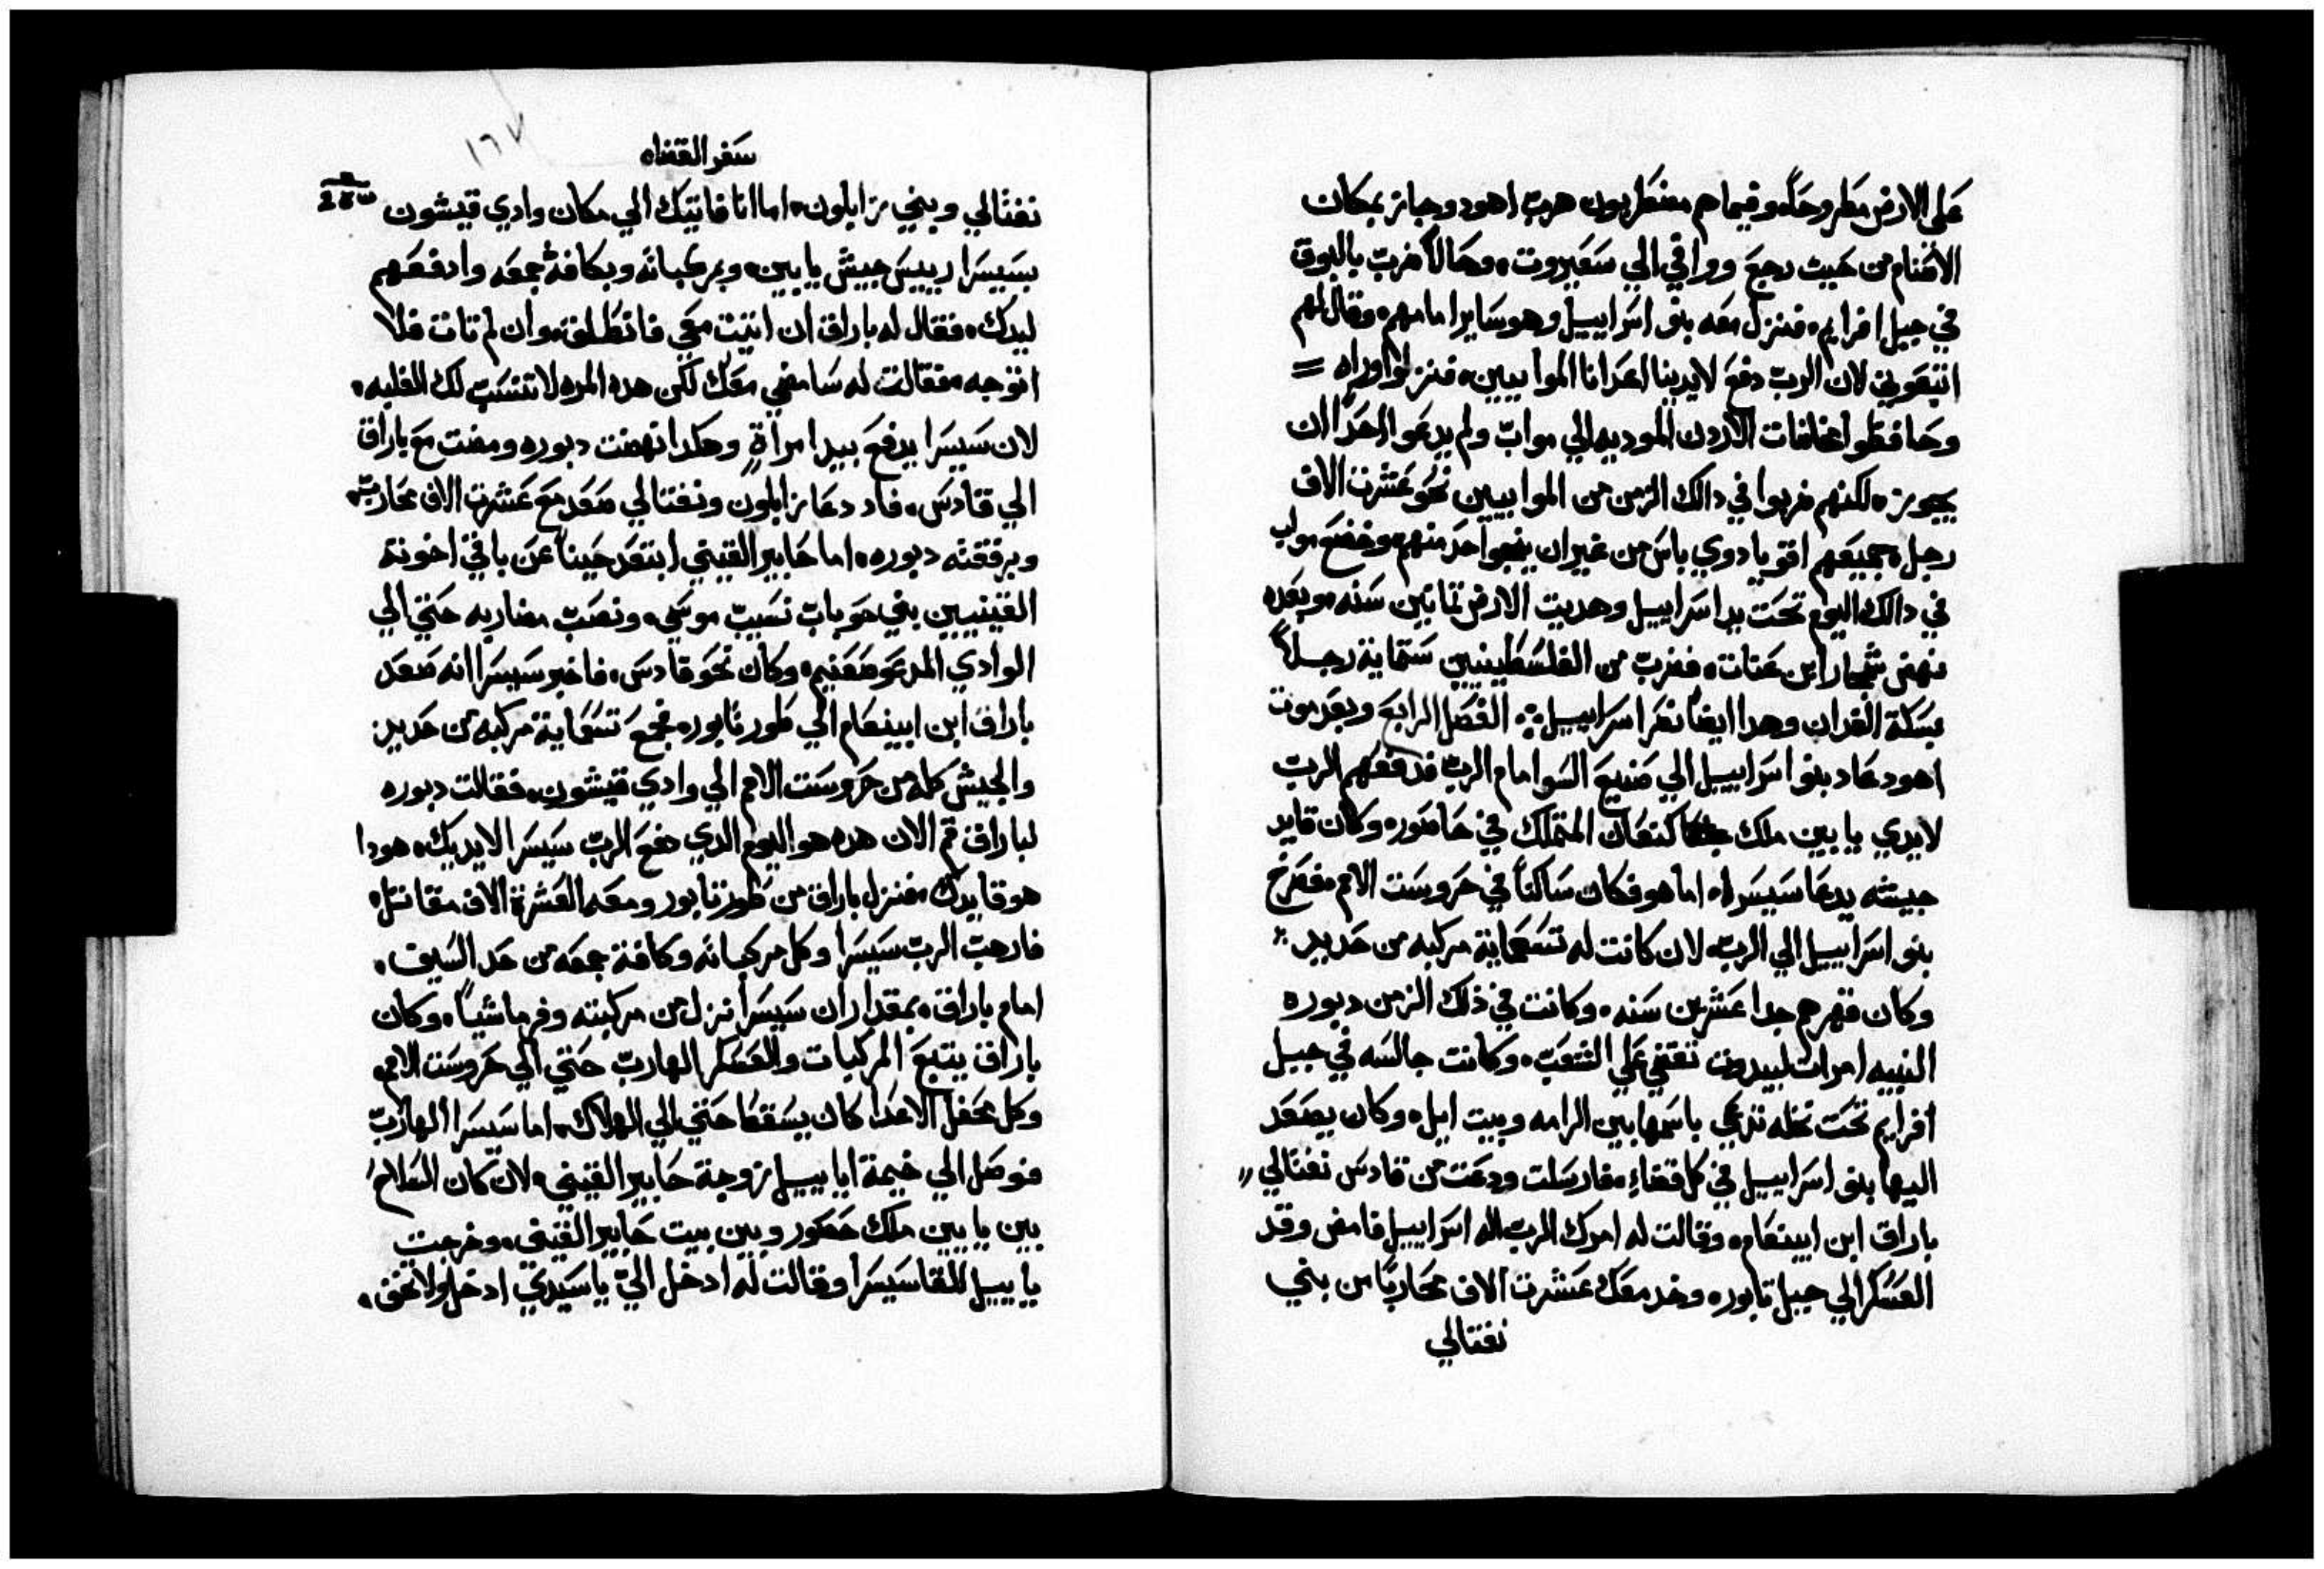 على الارض مطروحاً، وفيما هم مضطربون هرب اهود وجاز بمكان
الاغنام من حيث رجع ووافي الي سعيروت، وحالا ضرب بالبوق
في جبل افرايم، فنزل معه بنو اسراييل وهو سايرا امامهم، وقال لهم
اتبعوني لان الرب دفع لايدينا اعدانا الموابيين، فنزلوا وراه =
وحافظوا مخاضات الاردن الموديه الي مواب ولم يدعوا احدًا ان
يجوز، لكنهم ضربوا في دالك الزمن من الموابيين نحو عشرت الاف
رجل، جميعهم اقويا دوي باس من غير ان ينجوا احد منهم، وخضع مواب
في دالك اليوم تحت يد اسراييل وهديت الارض تمانين سنه، وبعده
نهض شمجار ابن عنات، فضرب من الفلسطينيين ستماية رجلاً
بسكة الفدان وهدا ايضاً نصر اسراييل ؞ الفصل الرابع وبعد موت
اهود عاد بنو اسراييل الي صنيع السوا امام الرب فدفعهم الرب
لايدي يابين ملك كنعان المتملك في حاصور، وكان قايد
جيشه يدعا سيسرا، اما هو فكان ساكناً في حروست الامم، فصرخ
بنو اسراييل الي الرب، لان كانت له تسعماية مركبه من حديد
وكان قهرهم جدا عشرين سنه، وكانت في ذلك الزمن دبوره
النبيه امرات لبيدوت تقضي علي الشعب، وكانت جالسه في جبل
افرايم تحت نخله تدعي باسمها بين الرامه وبيت ايل، وكان يصعد
اليها بنو اسراييل في كل قضاءٍ، فارسلت ودعت من قادس نفتالي
باراق ابن ابينعام، وقالت له امرك الرب اله اسراييل فامض وقد
العسكر الي جبل تابور، وخد معك عشرت الاف محاربًا من بني
نفتالي
١٦٧
سفر القضاه
نفتالي وبني زابلون، اما انا فاتيك الي مكان وادي قيشون
بسيسرا رييس جيش يابين، وبمركباته وبكافة جمعه وادفعهم
ليدك، فقال له باراق ان اتيت معي فانطلق، وان لم تات فلا
اتوجه، فقالت له سامضي معك لكن هده المره لا تنسب لك الغلبه،
لان سيسرا يدفع بيد امراةٍ وهكدا نهضت دبوره ومضت مع باراق
الي قادس، فاد دعا زابلون ونفتالي صعد مع عشرت الاف محارب،
وبرفقته دبوره، اما حابير القيني ابتعد حيناً عن باقي اخوته
القينيين بني حوباب نسيب موسي، ونصب مضاربه حتي الي
الوادي المدعو صعنيم، وكان نحو قادس، فاخبر سيسرا انه صعد
باراق ابن ابينعام الي طور تابور، فجمع تسعماية مركبه من حديد
والجيش كله من حروست الامم الي وادي قيشون، فقالت دبوره
لباراق قم الان هده هو اليوم الدي دفع الرب سيسرا لايديك، هودا
هو قايدك، فنزل باراق من طور تابور ومعه العشرة الاف مقاتل،
فارهب الرب سيسرا وكل مركباته وكافة جمعه من حد السيف،
امام باراق، بمقدار ان سيسرا نزل من مركبته وفر ماشياً، وكان
باراق يتبع المركبات والعسكر الهارب حتي الي حروست الامم،
وكل محفل الاعدا كان يسقط حتي الي الهلاك، اما سيسرا الهارب
فوصل الي خيمة اياييل زوجة حابير القيني، لان كان السلام
بين يابين ملك حصور وبين بيت حابير القيني، وخرجت
ياييل للقا سيسرا وقالت له ادخل اليّ يا سيدي ادخل ولا تخف،